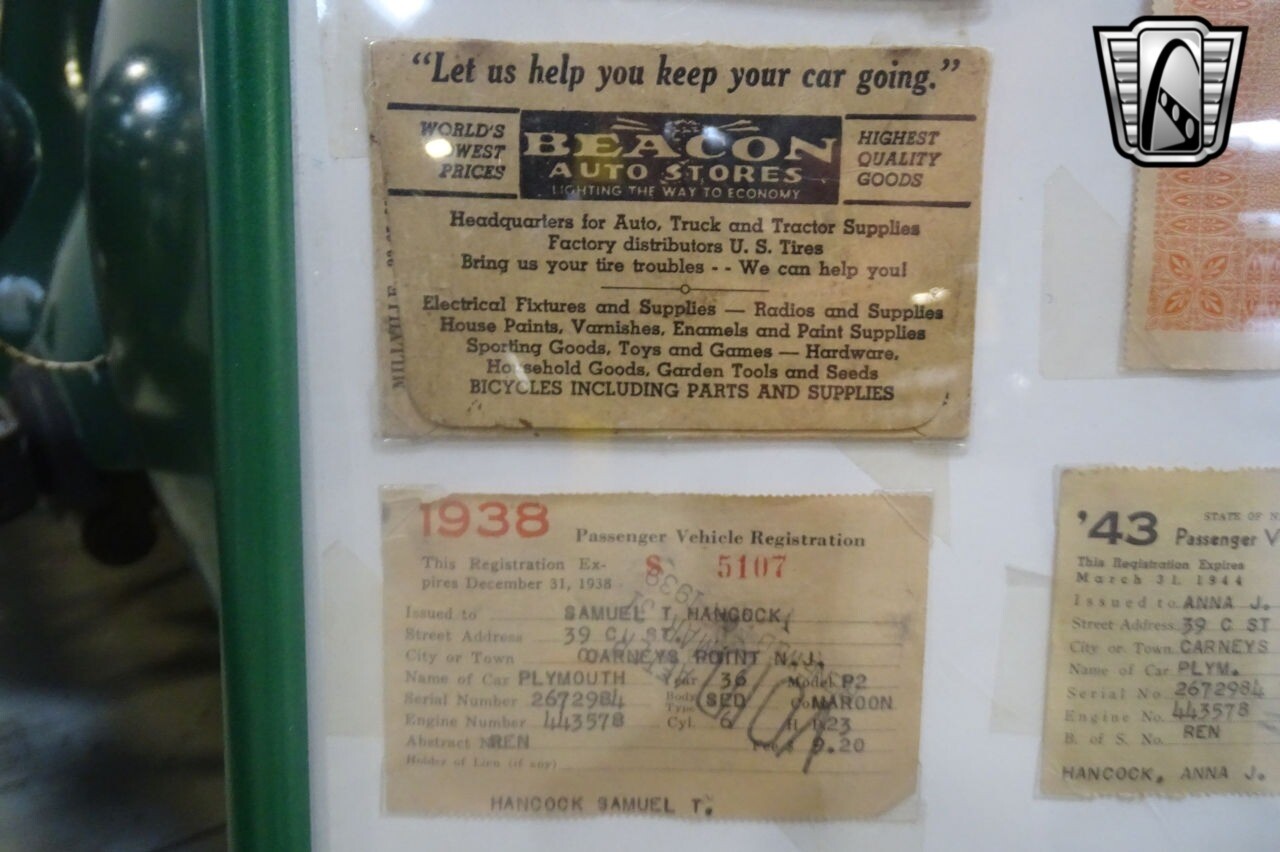 “Let us help you keep your car going.”
WORLD'S
LOWEST
PRICES
BEACON
AUTO STORES
LIGHTING THE WAY TO ECONOMY
HIGHEST
QUALITY
GOODS
Headquarters for Auto, Truck and Tractor Supplies
Factory distributors U. S. Tires
Bring us your tire troubles - - We can help you!
Electrical Fixtures and Supplies — Radios and Supplies
House Paints, Varnishes, Enamels and Paint Supplies
Sporting Goods, Toys and Games — Hardware,
Household Goods, Garden Tools and Seeds
BICYCLES INCLUDING PARTS AND SUPPLIES
MILLVILLE
1938 Passenger Vehicle Registration
This Registration Ex-
pires December 31, 1938
S 5107
Issued to SAMUEL T. HANCOCK
Street Address 39 C ST.
City or Town CARNEYS POINT N.J.
Name of Car PLYMOUTH Year 36 Model P2
Serial Number 2672984 Body Type SED Col MAROON
Engine Number 443578 Cyl. 6 H. 23
Abstract N REN Fee $ 9.20
Holder of Lien (if any)
HANCOCK SAMUEL T.
VOID
'43 STATE OF N
Passenger V
This Registration Expires
March 31, 1944
Issued to ANNA J.
Street Address 39 C ST
City or Town CARNEYS
Name of Car PLYM.
Serial No 2672984
Engine No. 443578
B. of S. No. REN
HANCOCK, ANNA J.